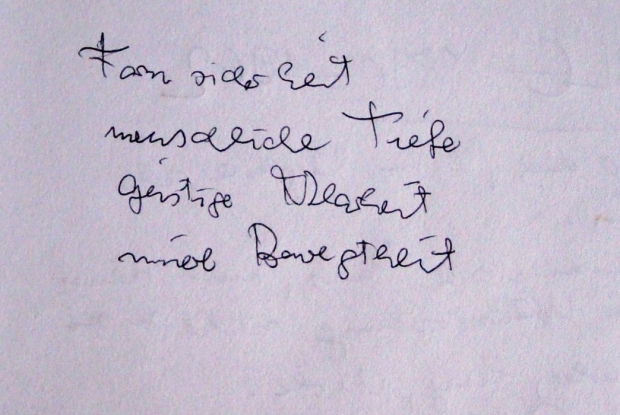 Formsicherheit
menschliche Tiefe
geistige Klarheit
Bewegtheit